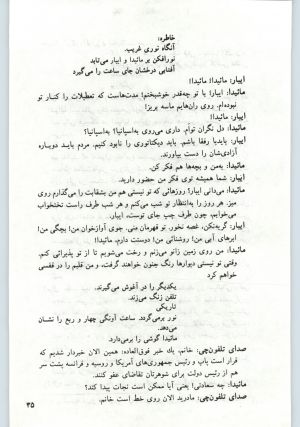 خاطره:
آنگاه نوری غریب.
نورافکن بر مائیدا و ایبار می‌تابد
آفتابی درخشان جای ساعت را می‌گیرد
ایبار: مائیدا! مائیدا!
مائیدا: ایبارا با تو چه‌قدر خوشبختم! مدت‌هاست که تعطیلات را کنار تو
نبوده‌ام. روی ران‌هایم ماسه بریز!
ایبار: مائیدا!
مائیدا: دل نگران توام. داری می‌روی به‌اسپانیا؟ به‌اسپانیا؟
ایبار: بایدبا رفقا باشم. باید دیکتاتوری را نابود کنیم. مردم باید دوباره
آزادی‌شان را دست بیاورند.
مائیدا: به‌من و بچه‌ها هم فکر کن.
ایبار: شما همیشه توی فکر من حضور دارید.
مائیدا: می‌دانی ایبار؟ روزهائی که تو نیستی هم من بشقابت را می‌گذارم روی
میز. هر روز را به‌انتظار تو شب می‌کنم و هر شب طرف راست تختخواب
می‌خوابم، چون طرف چپ جای توست، ایبار.
ایبار: گریه‌نکن، غصه نخور. تو قهرمان منی. جوی آوازخوان من! بچگی من!
ابرهای آبی من! روشنائی من! دوستت دارم، مائیدا!
مائیدا: من روی زمین زانو می‌زنم و رخت می‌شویم تا از تو پذیرائی کنم.
وقتی تو نیستی دیوارها رنگ جنون خواهند گرفت، و من قلیم را قفسی
خواهم کرد
یکدیگر را در آغوش می‌گیرند.
تلفن زنگ می‌زند.
تاریکی
نور برمی‌گردد. ساعت آونگی چهار و ربع را نشان
می‌دهد.
مائیدا گوشی را برمی‌دارد.
صدای تلفون‌چی: خانم، یك خبر فوق‌العاده: همین الان خبردار شدیم که
قرار است پاپ و رئیس جمهوری‌های آمریکا و روسیه و فرانسه پشت سر
هم از رئیس دولت برای شوهرتان تقاضای عفو کنند.
مائیدا: چه سعادتی! یعنی آیا ممکن است نجات پیدا کند؟
صدای تلفون‌چی: مادرید الان روی خط است خانم.
۳۵